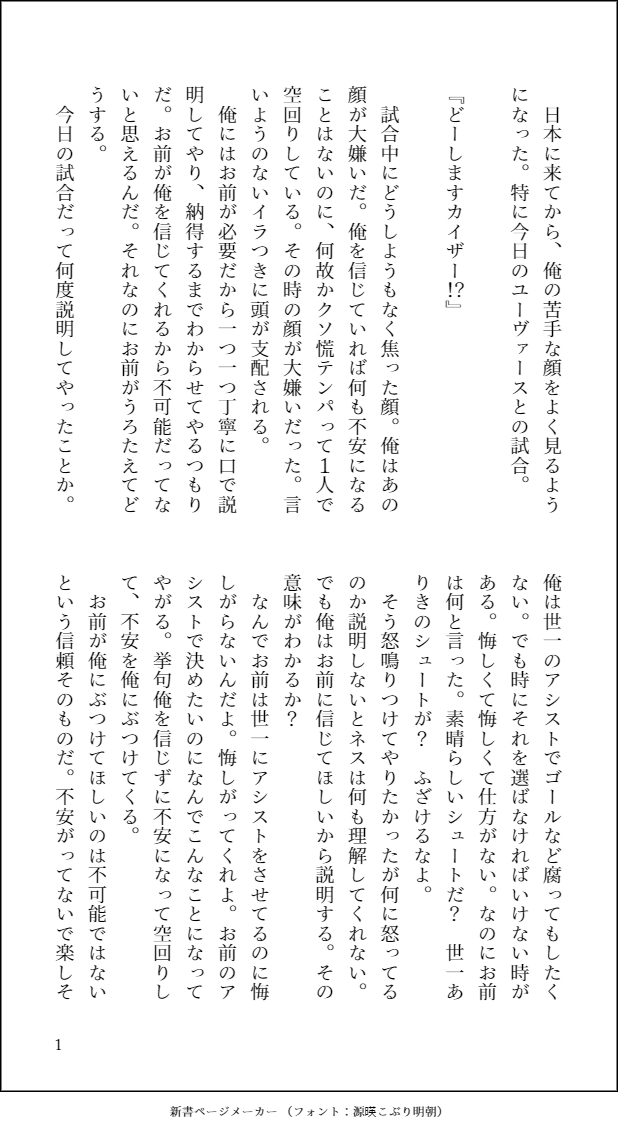 日本に来てから、俺の苦手な顔をよく見るよう
になった。特に今日のユーヴァースとの試合。
『どーしますカイザー!?』
　試合中にどうしようもなく焦った顔。俺はあの
顔が大嫌いだ。俺を信じていれば何も不安になる
ことはないのに、何故かクソ慌テンパって1人で
空回りしている。その時の顔が大嫌いだった。言
いようのないイラつきに頭が支配される。
　俺にはお前が必要だから一つ一つ丁寧に口で説
明してやり、納得するまでわからせてやるつもり
だ。お前が俺を信じてくれるから不可能だってな
いと思えるんだ。それなのにお前がうろたえてど
うする。
　今日の試合だって何度説明してやったことか。
俺は世一のアシストでゴールなど腐ってもしたく
ない。でも時にそれを選ばなければいけない時が
ある。悔しくて悔しくて仕方がない。なのにお前
は何と言った。素晴らしいシュートだ？　世一あ
りきのシュートが？　ふざけるなよ。
　そう怒鳴りつけてやりたかったが何に怒ってる
のか説明しないとネスは何も理解してくれない。
でも俺はお前に信じてほしいから説明する。その
意味がわかるか？
　なんでお前は世一にアシストをさせてるのに悔
しがらないんだよ。悔しがってくれよ。お前のア
シストで決めたいのになんでこんなことになって
やがる。挙句俺を信じずに不安になって空回りし
て、不安を俺にぶつけてくる。
　お前が俺にぶつけてほしいのは不可能ではない
という信頼そのものだ。不安がってないで楽しそ
1
新書ページメーカー（フォント：源暎こぶり明朝）